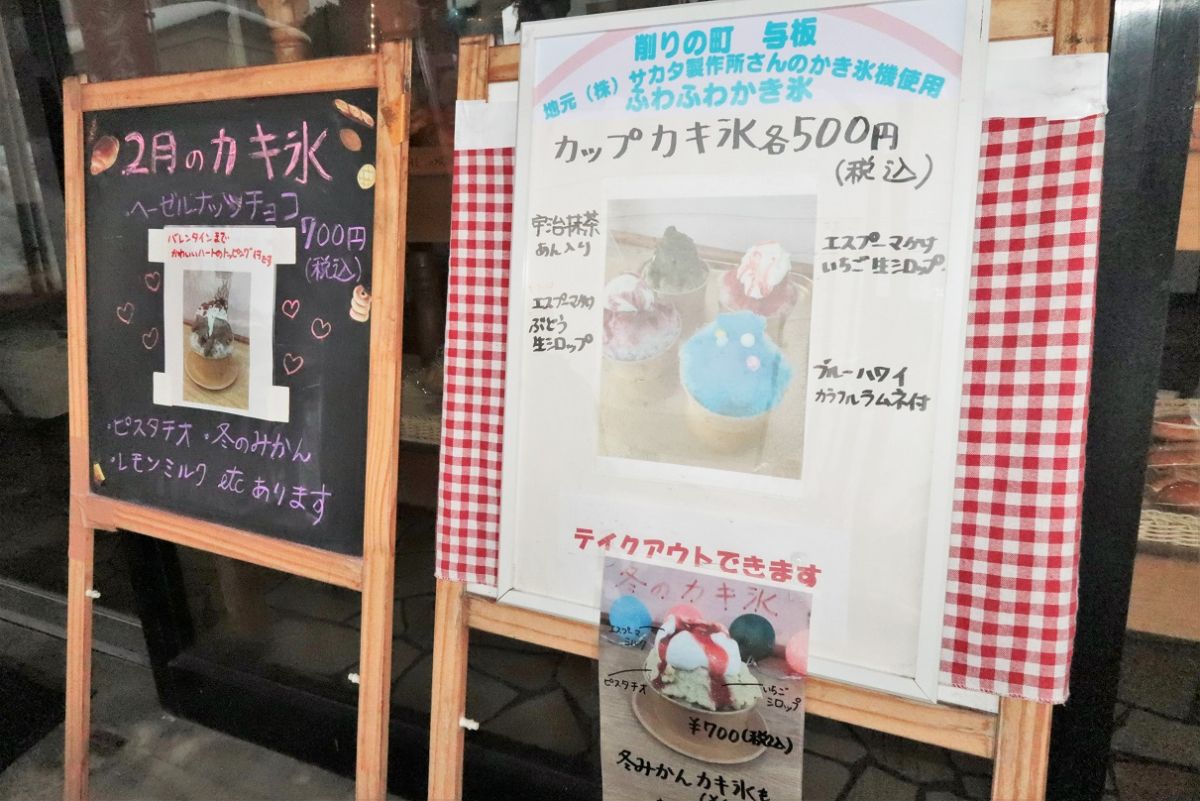 2月のカキ氷
・ヘーゼルナッツチョコ
700円
(税込)
バレンタインまで
かわいいハートのトッピング付です
・ピスタチオ ・冬のみかん
・レモンミルク etc あります
削りの町 与板
地元(株)サカタ製作所さんのかき氷機使用
ふわふわかき氷
カップカキ氷各500円
(税込)
宇治抹茶
あん入り
エスプーマがけ
いちご生シロップ
エスプーマがけ
ぶどう
生シロップ
ブルーハワイ
カラフルラムネ付
テイクアウトできます
冬のカキ氷
エスプーマ
ミルク
ピスタチオ
いちご
シロップ
¥700(税込)
冬みかんカキ氷も